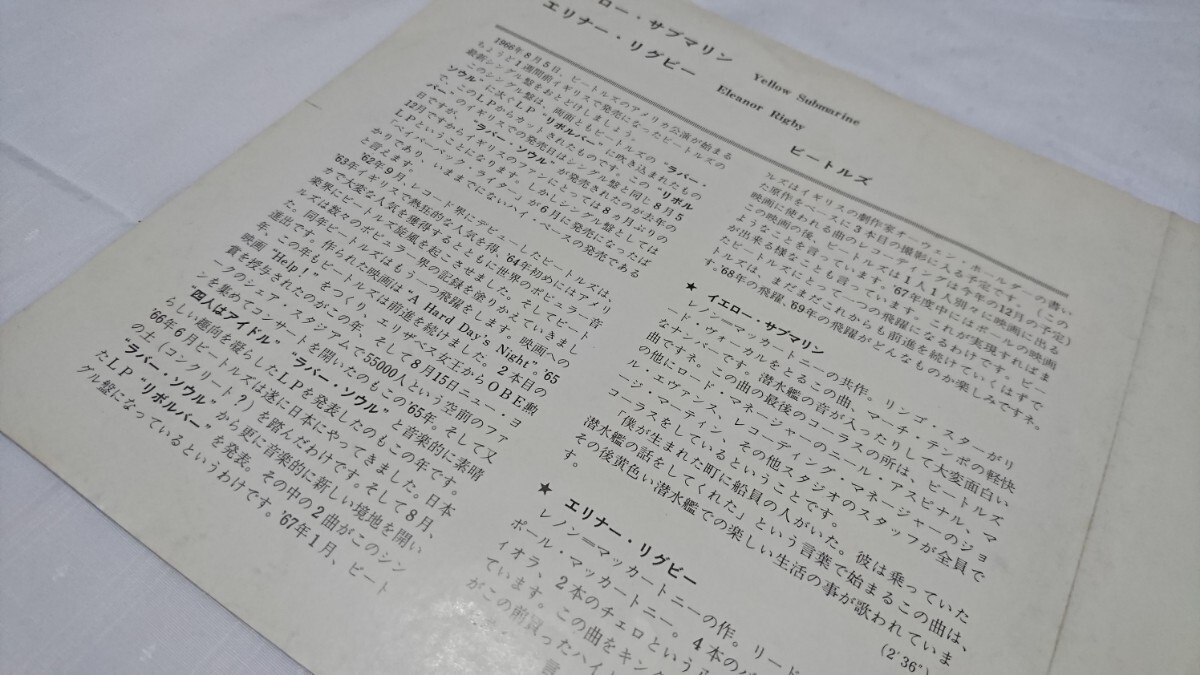 ロー・サブマリン Yellow Submarine
エリナー・リグビー Eleanor Rigby
ビートルズ
1966年8月5日、ビートルズのアメリカ公演が始まる
ちょうど1週間前イギリスで発売になったビートルズの
最新シングル盤をおとどけしましょう。
このシングル盤は、両面ともビートルズの “ラバー・
ソウル” に次ぐLP “リボルバー” に吹き込まれたもの
で、このLPからカットされたものです。この “リボル
バー” のイギリスでの発売日はシングル盤と同じ8月5
日ですが、 “ラバー・ソウル” が発売されたのが去年の
12月ですからイギリスのファンにとっては8ヵ月ぶりの
LPということになります。しかしシングル盤としては
“ペイパーバック・ライター” が6月に発売になったば
かりであり、いままでにないハイ・ペースの発売である
と言えます。
'62年9月、レコード界にデビューしたビートルズは、
'63年イギリスで熱狂的な人気を得、'64年初めにはアメリ
カで大変な人気を獲得するとともに世界のポピュラー音
楽界にビートルズ旋風を起こさせました。そしてビート
ルズは数々のポピュラー界の記録を塗りかえていきまし
た。同年ビートルズはもう一つ飛躍をします。映画への
進出です。作られた映画は “A Hard Day's Night”。'65
年、この年もビートルズは前進を続けました。2本目の
映画 “Help!” をつくり、エリザベス女王からOBE勲
賞を授与されたのがこの年、そして8月15日ニュー・ヨ
ークのシェア・スタジアムで55000人という空前のファ
ンを集めてコンサートを開いたのもこの'65年。そして又
“四人はアイドル” “ラバー・ソウル” と音楽的に素晴
らしい趣向を凝らしたLPを発表したのもこの年です。
'66年6月ビートルズは遂に日本にやってきました。日本
の土(コンクリート?)を踏んだわけです。そして8月、
“ラバー・ソウル” から更に音楽的に新しい境地を開い
たLP “リボルバー” を発表。その中の2曲がこのシン
グル盤になっているというわけです。'67年1月、ビート
ルズはイギリスの劇作家オーウェン・ホールダーの書い
た原作をベースに3本目の撮影に入る予定です。(この
映画に使われる曲のレコーディングは今年の12月の予定)
この映画の後、ビートルズは1人1人別々に映画に出る
ようなことを言っています。'67年度中にはポールの映画
が出来る様なことも言っています。これが実現すればま
たビートルズにとって一つの飛躍になるわけです。ビー
トルズは、まだまだこれからも前進を続けていくはずで
す。'68年の飛躍、'69年の飛躍がどんなものか楽しみですネ。
★ イエロー・サブマリン
レノン=マッカートニーの共作。リンゴ・スターがリ
ード・ヴォーカルをとるこの曲、マーチ・テンポの軽快
なナンバーです。潜水艦の音が入ったりして大変面白い
曲ですネ。この曲の最後のコーラスの所は、ビートルズ
の他にロード・マネージャーのニール・アスピナル、マ
ル・エヴァンス、レコーディング・マネージャーのジョ
ージ・マーティン、その他スタジオのスタッフが全員で
コーラスをしているということです。
「僕が生まれた町に船員の人がいた。彼は乗っていた
潜水艦の話をしてくれた」という言葉で始まるこの曲は、
その後黄色い潜水艦での楽しい生活の事が歌われていま
す。 (2'36")
★ エリナー・リグビー
レノン=マッカートニーの作。リード
ポール・マッカートニー。4本のバ
イオラ、2本のチェロという
ています。この曲をキング
がこの前買ったハイ